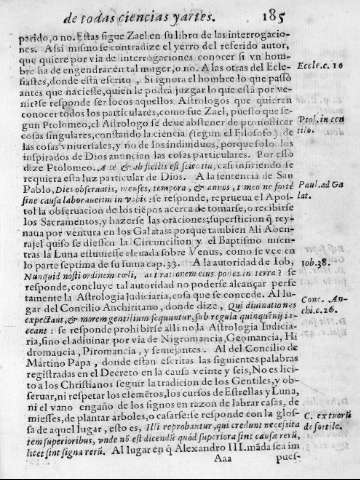 de todas ciencias y artes. 185
perido, o no. Estas sigue Zael en su libro de las interrogacio-
nes. Assi mismo se contradize el yerro del referido autor,
que quiere por via de interrogaciones conocer si vn hom-
bre ha de engendrar en tal muger, o no. A las otras del Ecle- Eccle. c. 10
siastes, donde està escrito, Si ignora el hombre lo que passò
antes que naciesse, quien le podrà juzgar lo que està por ve-
nir? se responde ser locos aquellos Astrologos que quieren
conocer todos los particulares, como fue Zael, puesto que se-
gun Ptolomeo, el Astrologo se deve abstener de pronosticar Ptol. in cen
cosas singulares, constando la ciencia (segun el Filosofo) de tilo.
las cosas vniversales, y no de los individuos, porque solo los
inspirados de Dios anuncian las cosas particulares. Por esso
dize Ptolomeo, A te & ab scientia, casi infiriendo se
requiera esta luz particular de Dios. A la sentencia de San
Pablo, Dies observatis, menses, tempora, & annos, timeo ne fortè Paul. ad Ga
sine causa laboraverim in vobis: se responde, reprueva el Apos- lat.
tol la observacion de los tiẽpos acerca de tomarse, o recibirse
los Sacramentos, y hazerse las oraciones; supersticion q̃ rey-
nava por ventura en los Galatas porque tambien Ali Aben-
rajel quiso se diessen la Circuncision y el Baptismo mien-
tras la Luna estuviesse elevada sobre Venus, como se vee en
la parte septima de su suma cap. 33. A la autoridad de Iob, Iob. 38.
Nunquid nosti ordinem cœli, & rationem eius pones in terra? se
responde, concluye tal autoridad no poderse alcançar perfe
tamente la Astrologia Iudiciaria, cosa que se concede. Al lu-
gar del Concilio Anchiritano, donde dize, Qui divinationes Conc. An-
expectant, & morem gentilium sequuntur, sub regula quinquẽnij ia- chi. c. 26.
ceant: se responde prohibirse alli no la Astrologia Iudicia-
ria, sino el adivinar por via de Nigromancia, Geomancia, Hi
dromaucia, Piromancia, y semejantes. Al del Concilio de
Martino Papa, donde estan escritas las siguientes palabras
registradas en el Decreto en la causa veinte y seis, No es lici-
to a los Christianos seguir la tradicion de los Gentiles, y ob-
servar, ni respetar los elemẽtos, los cursos de Estrellas y Luna,
ni el vano engaño de los signos en razon de labrar casas, de
miesses, de plantar arboles, o casarse: se responde con la glos- C. extrarii
sa de aquel lugar, esto es, Illi reprobantur, qui credunt necessita de sortile.
tem superioribus, vnde nõ est dicendũ quòd superiora sint causa rerũ,
licet sint signa rerũ. Al lugar en q̃ Alexandro III. mãda sea im
Aaa pues-